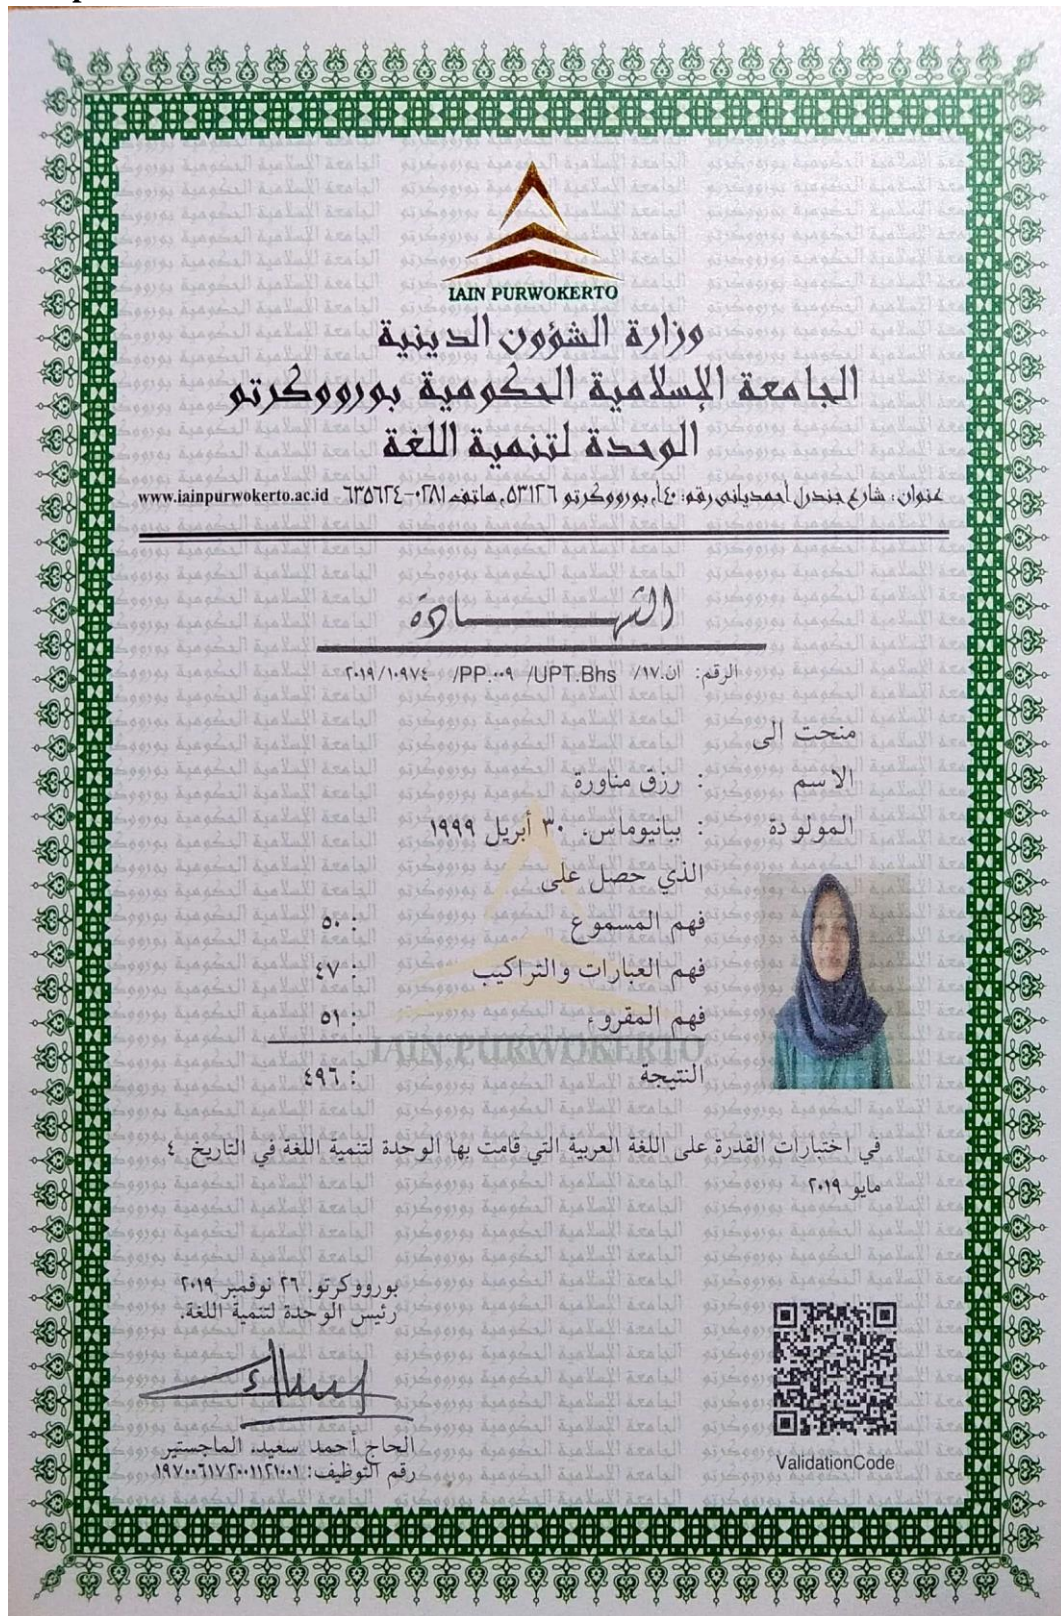 IAIN PURWOKERTO
وزارة الشؤون الدينية
الجامعة الإسلامية الحكومية بورووكرتو
الوحدة لتنمية اللغة
عنوان: شارع جندرل احمدياني رقم: ٤٠ا، بورووكرتو ٥٣١٢٦، هاتف ٠٢٨١-٦٣٥٦٢٤ - www.iainpurwokerto.ac.id
الشهـــــــادة
الرقم: ان.١٧/ UPT.Bhs/ ٠٠٩.PP/ ١٠٩٧٤/ ٢٠١٩
منحت الى
الاسم : رزق مناورة
المولودة : ببانيوماس، ٣٠ أبريل ١٩٩٩
الذي حصل على
فهم المسموع : ٥٠
فهم العبارات والتراكيب : ٤٧
فهم المقروء : ٥١
IAIN PURWOKERTO
النتيجة : ٤٩٦
في اختبارات القدرة على اللغة العربية التي قامت بها الوحدة لتنمية اللغة في التاريخ ٤
مايو ٢٠١٩
بورووكرتو، ٢٦ نوفمبر ٢٠١٩
رئيس الوحدة لتنمية اللغة،
الحاج أحمد سعيد، الماجستير
رقم التوظيف: ١٩٧٠٠٦١٧٢٠٠١١٢١٠٠١
ValidationCode